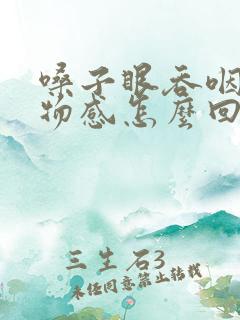 嗓子眼吞咽
物感怎麼回
三生石3
未经同意禁止转载